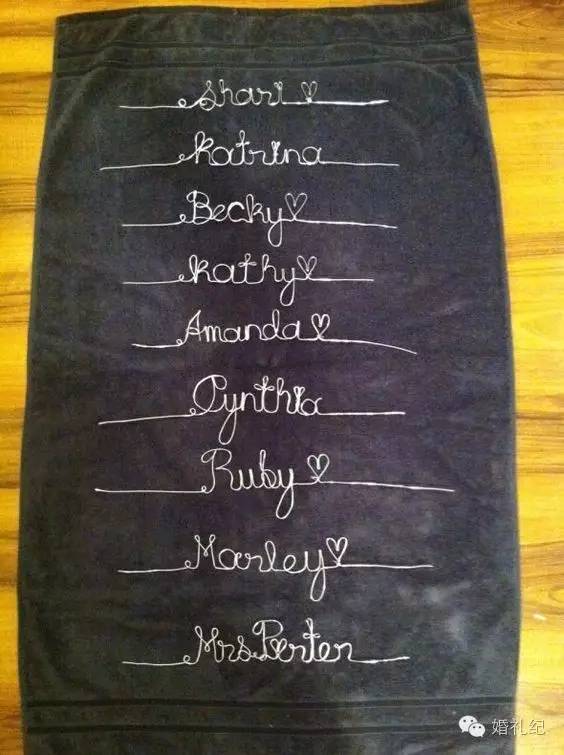 Shari
Katrina
Becky
Kathy
Amanda
Cynthia
Ruby
Marley
Mrs.Porter
婚礼纪